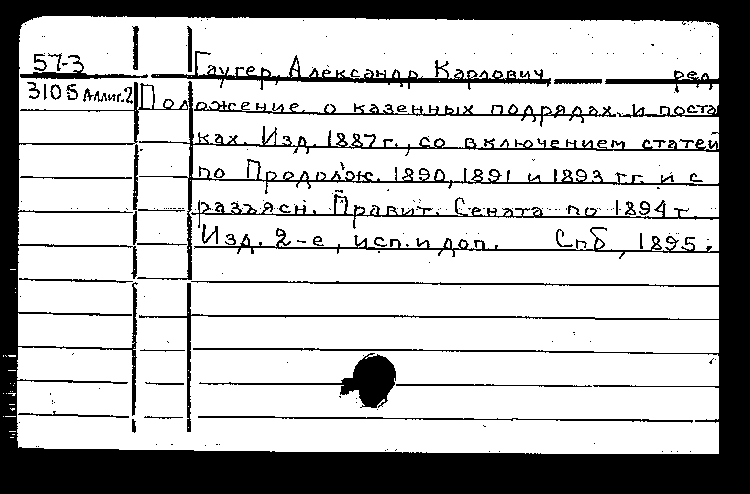 57-3 Гаугер, Александр Карлович, ред.
3105 Аллиг.2 Положение о казенных подрядах и поста
ках. Изд. 1887 г., со включением статей
по Продолж. 1890, 1891 и 1893 гг. и с
разъясн. Правит. Сената по 1894 г.
Изд. 2-е, исп. и доп. Спб, 1895.